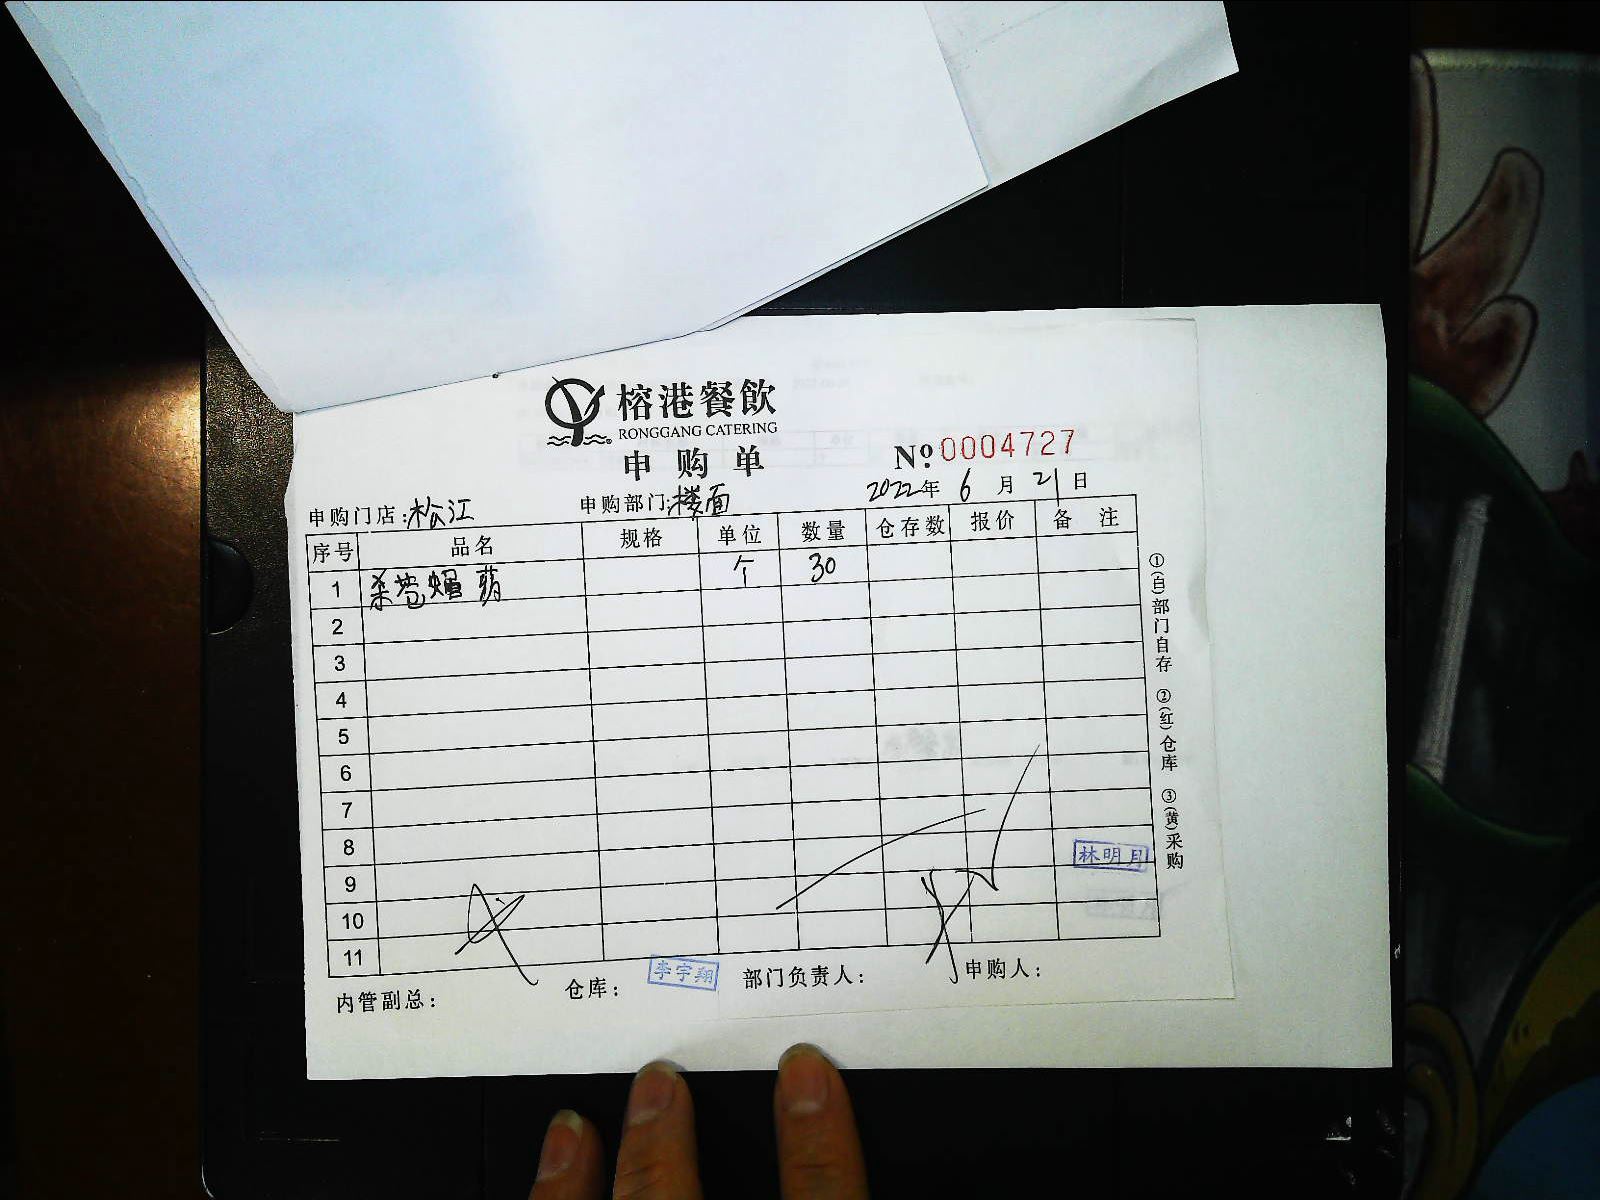 榕港餐飲
RONGGANG CATERING
申购单
№:0004727
申购门店:松江
申购部门:楼面
2022年6月21日
序号 品名 规格 单位 数量 仓存数 报价 备注
1 杀苍蝇 个 30
2
3
4
5
6
7
8
9
10
11
林明月
内管副总:
仓库: 李宇翔
部门负责人:
申购人:
①(白)部门自存 ②(红)仓库 ③(黄)采购